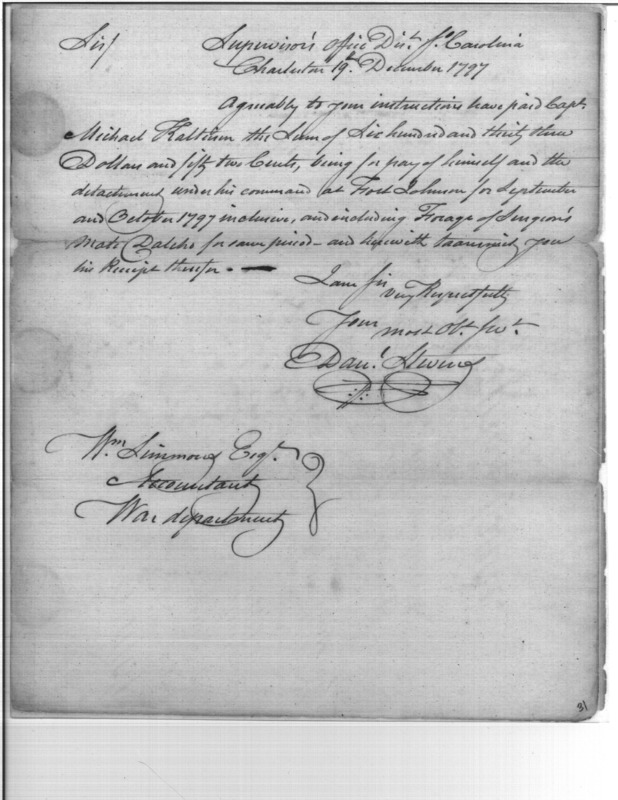 Sir/ Supervisor's office Dist. So. Carolina
Charleston 19th December 1797
Agreeably to your instructions have paid Capt.
Michael Kaltison the Sum of Six hundred and thirty three
Dollars and fifty two Cents, being for pay of himself and the
detachment under his command at Fort Johnson for September
and October 1797 inclusive, and including Forage of Surgeon's
Mate Dalcho for same period - and herewith transmit you
his Receipt therefor. -
I am Sir
Very Respectfully
Your
most Obt. Svt.
Danl. Stevens
Wm. Simmons Esqr.
Accountant
War department
31